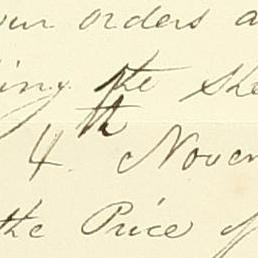 our orders a
ing the She
4th Novem
the Price of